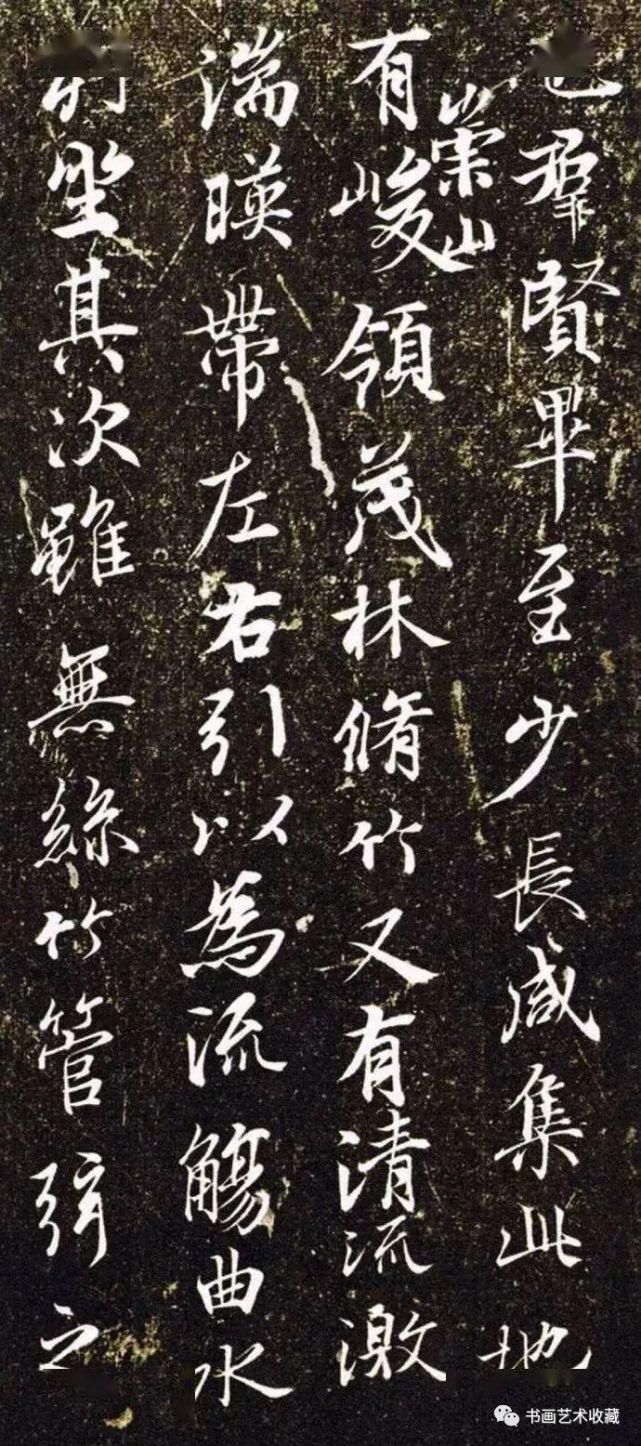 也羣賢畢至少長咸集此地
崇山
有峻領茂林脩竹又有清流激
湍暎帶左右引以為流觴曲水
列坐其次雖無絲竹管弦之
书画艺术收藏